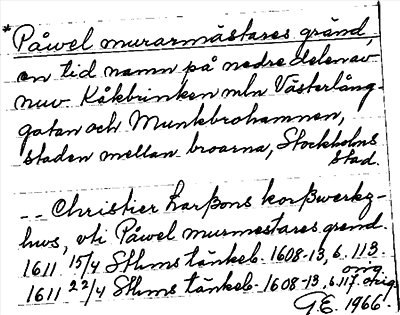 *Påwel murarmästares gränd,
en tid namn på nedre delen av
nuv. Kåkbrinken mln Västerlång-
gatan och Munkbrohamnen,
staden mellan broarna, Stockholms
stad.
-- Christier Larßons korßwerkz-
hws, vti Påwel murmestares grend.
1611 15/4 Sthms tänkeb. 1608-13, s. 113
orig.
1611 22/4 Sthms tänkeb. 1608-13, s. 117. orig.
G.E. 1966.